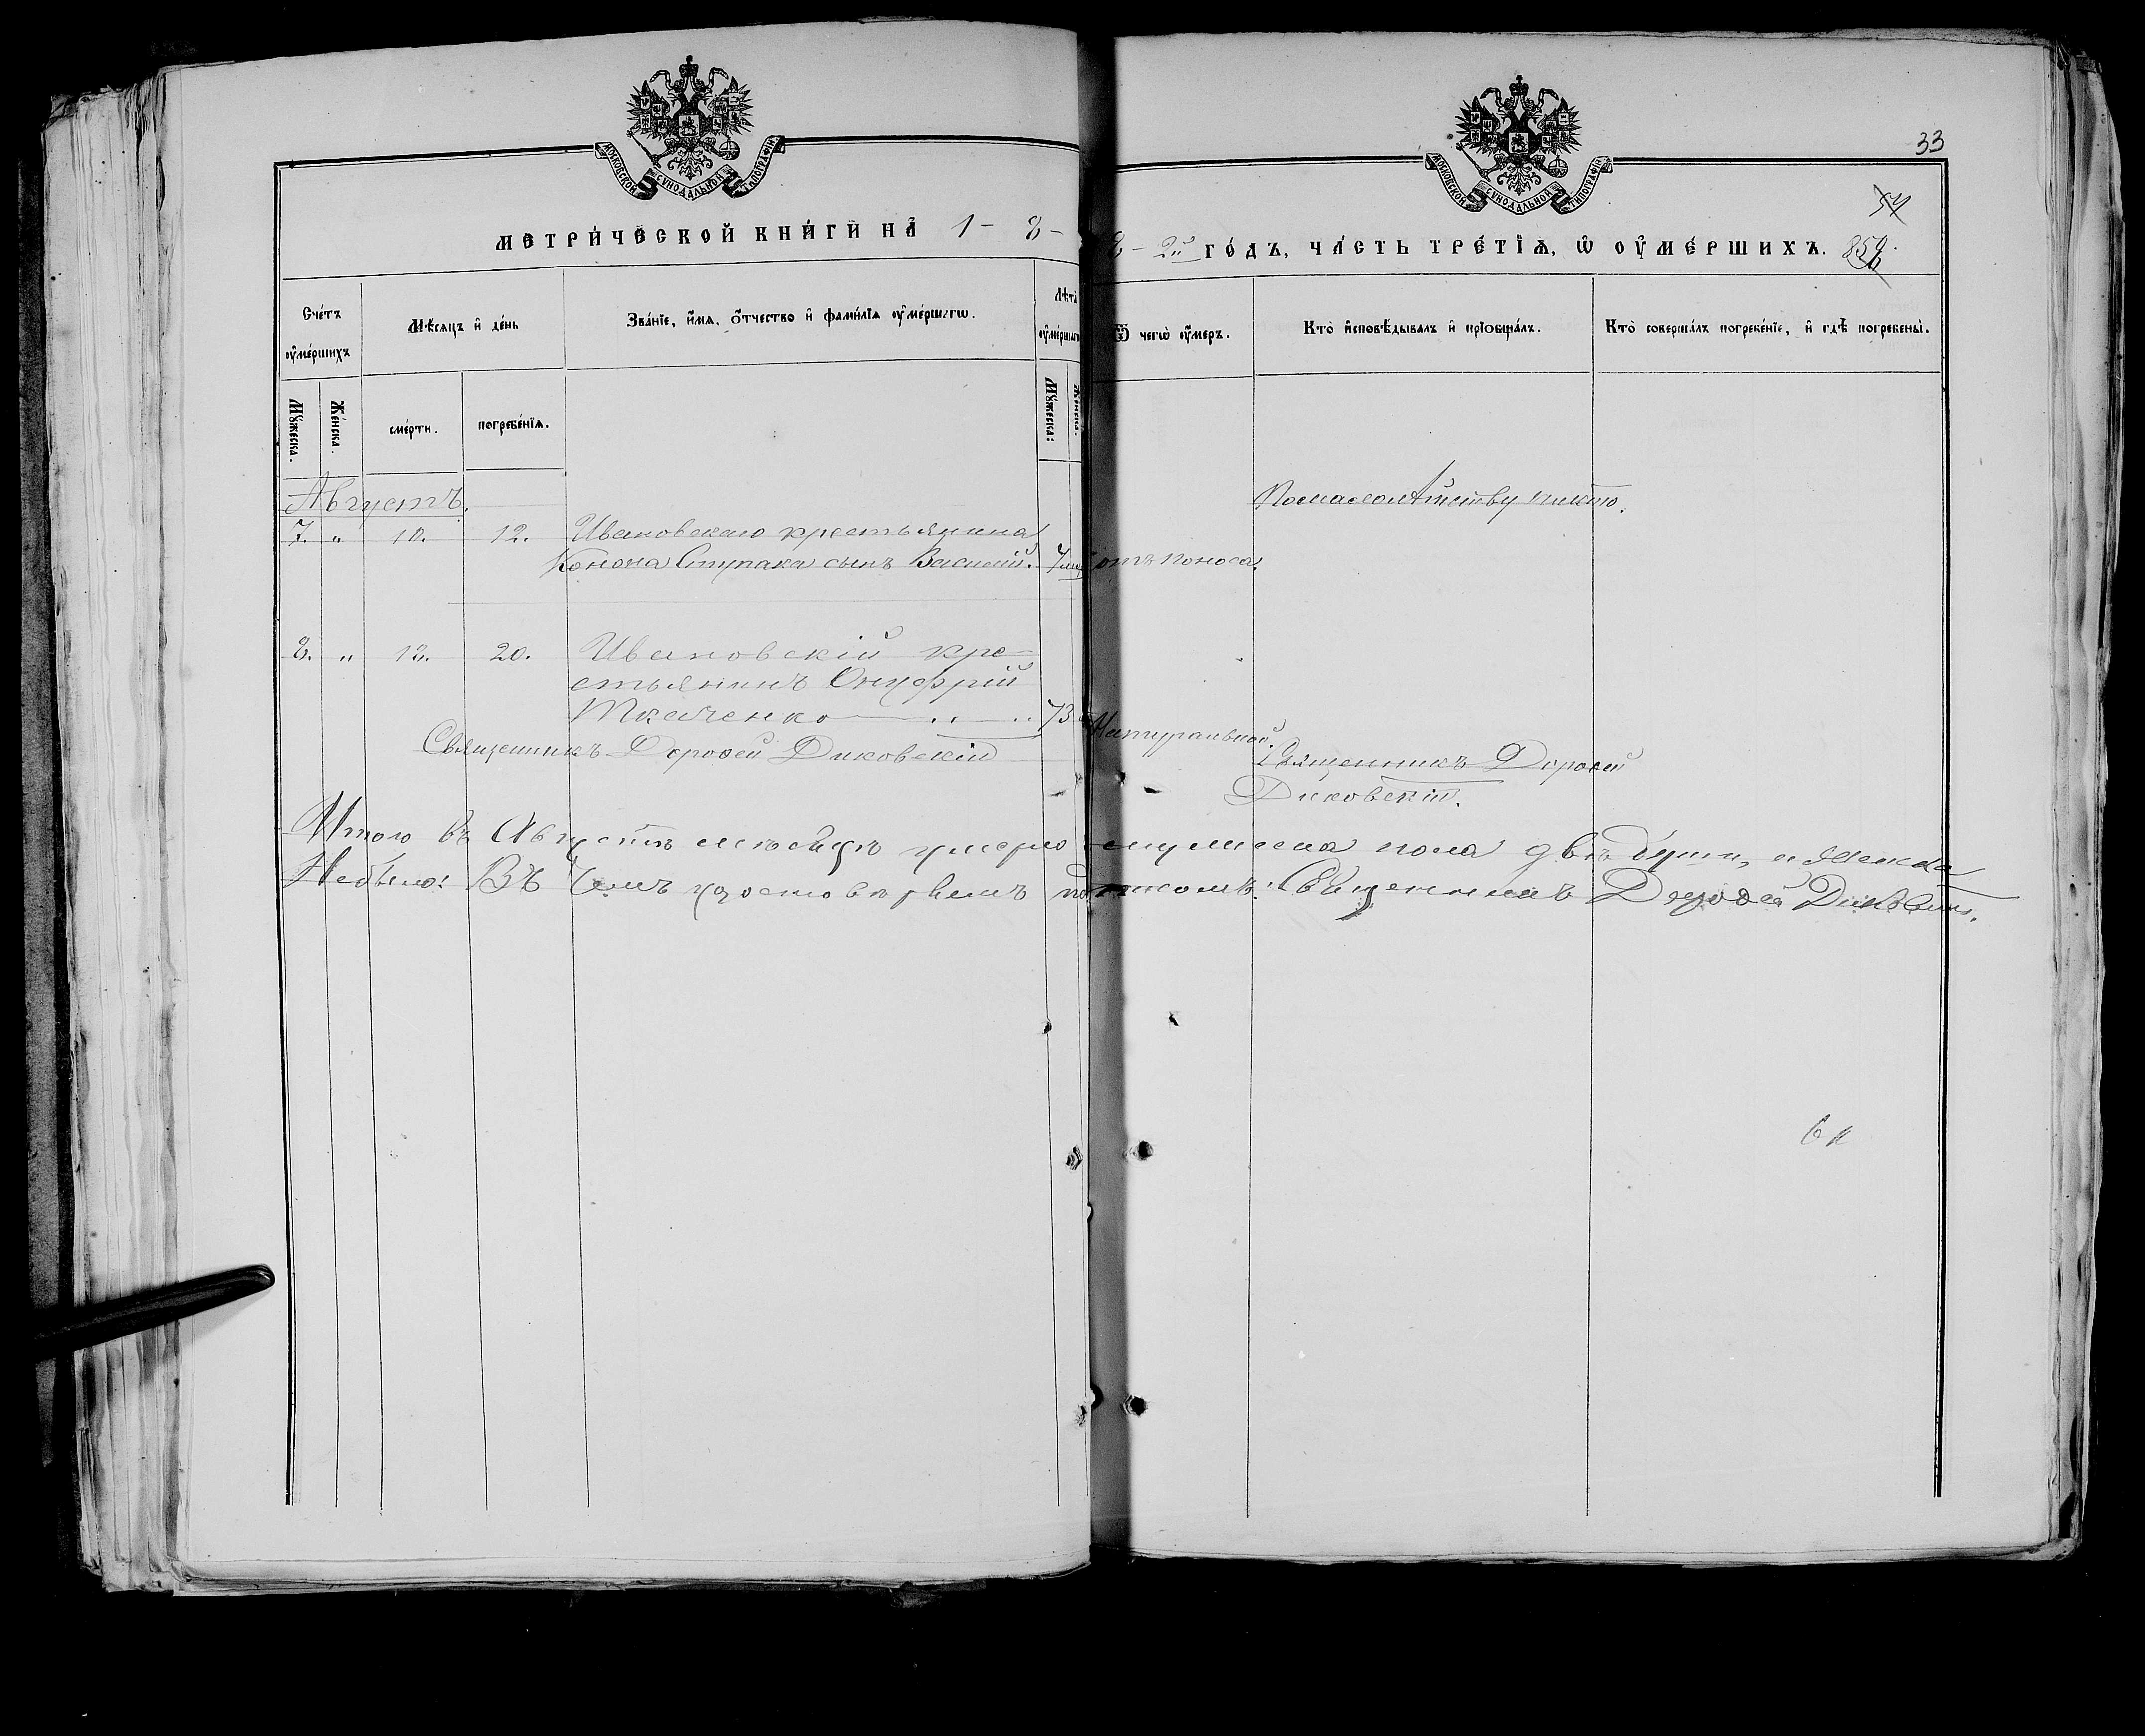 МОСКОВСКОЙ СѴНОДАЛЬНОЙ ТИПОГРАФІИ
МОСКОВСКОЙ СѴНОДАЛЬНОЙ ТИПОГРАФІИ
33
54
МЕТРИ́ЧЕСКОЙ КНИ́ГИ НА̀ 1 - 8 -
8 - 2й ГО́ДЪ, ЧА́СТЬ ТРЕ́ТІѦ, Ѽ ОУ҆МЕ́РШИХЪ.
Сче́тъ оу҆ме́ршихъ
Мѣ́сяцъ и҆ де́нь
Зва́ніе, и҆́мя, ѻ҆́тчество и҆ фами́лія оу҆ме́ршагѡ.
Лѣ́та оу҆ме́ршагѡ
Ѿ чегѡ̀ оу҆́меръ.
Кто̀ и҆сповѣ́дывалъ и҆ прїѻбща́лъ.
Кто̀ соверша́лъ погребе́ніе, и҆ гдѣ̀ погребены̀.
Мꙋ́жеска.
Же́нска.
сме́рти.
погребе́нїѧ.
Мꙋ́жеска:
Же́нска.
Августъ.
По малолѣтству никто.
7. " 10. 12. Ивановскаго крестьянина
Конона Ступака сынъ Василій. 7 отъ поноса.
8. " 18. 20. Ивановскій кре-
стьянинъ Онуфрій
Ткаченко 73 Натуральной.
Священникъ Дороѳей Диковскій
Священникъ Дороѳей
Диковскій.
Итого въ Августѣ мѣсяцѣ умерло мужеска пола двѣ души, а женска
Небыло: Въ чемъ удостовѣряемъ подписомъ: Священникъ Дороѳей Диковскій.
6 к